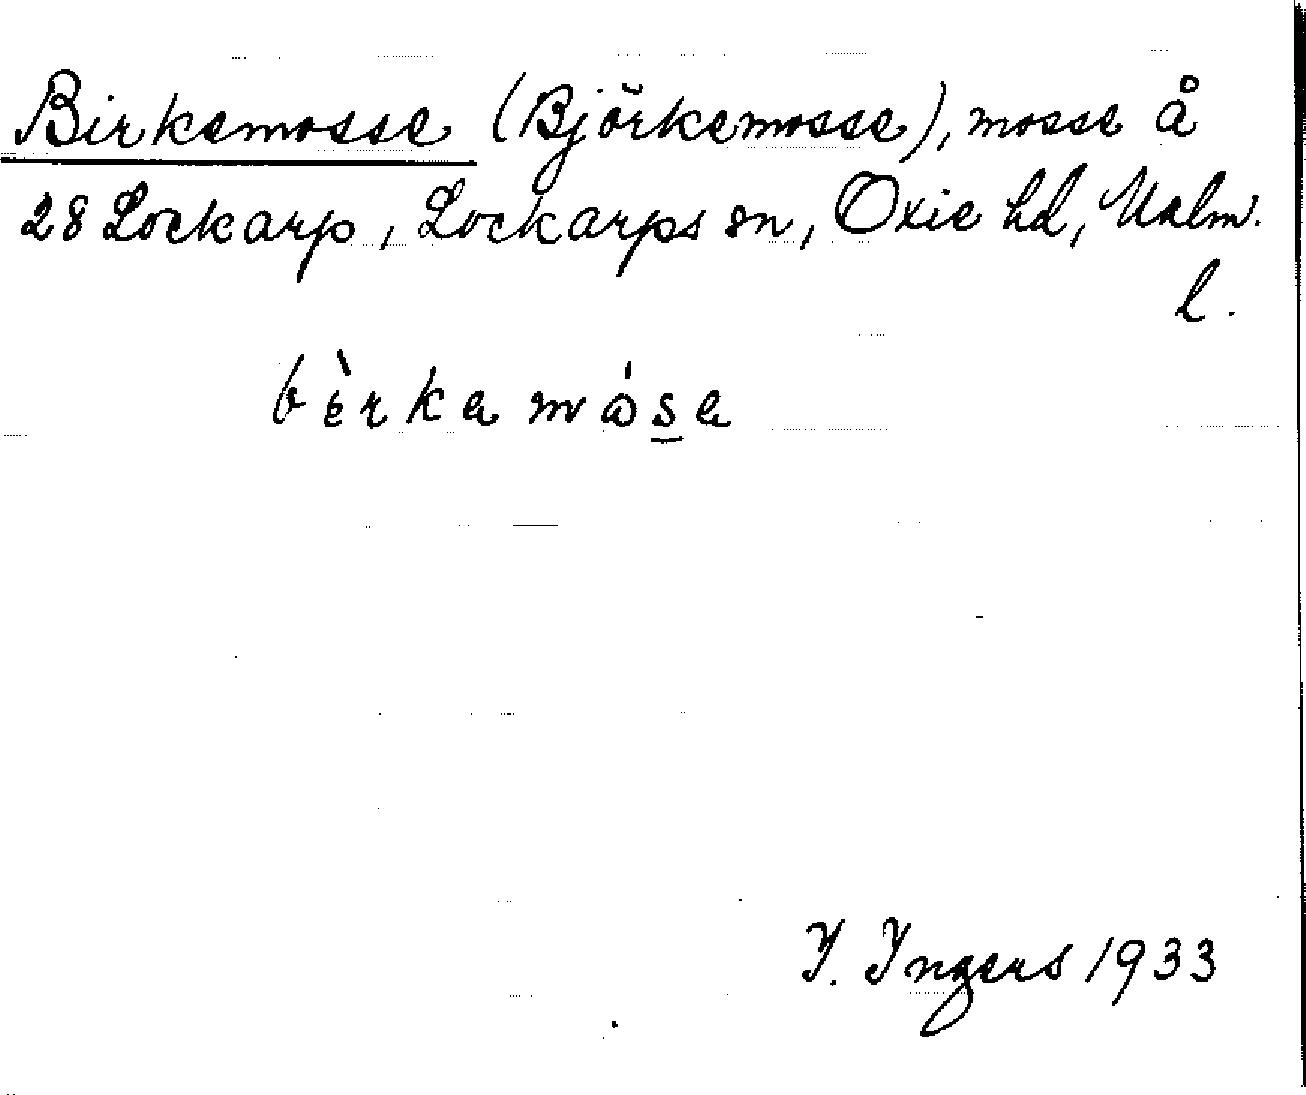 Birkemosse (Björkemosse), mosse å
28 Lockarp, Lockarps sn, Oxie hd, Malm.
l.
bèrka mósa
I. Ingers 1933